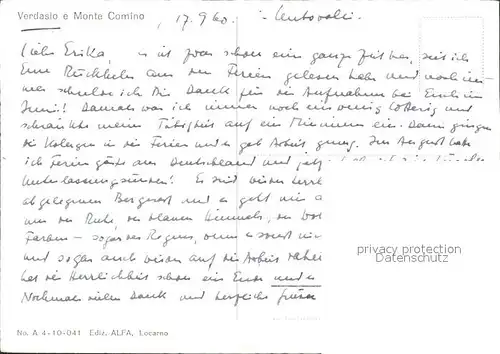 Verdasio e Monte Comino
, 17.9.60. Centovalli.
Liebe Erika, es ist zwar schon eine ganze Zeit her, seit ich
Eure Rückkehr aus den Ferien gelesen habe und noch im-
mer schulde ich Dir Dank für die Aufnahme bei Euch im
Juni! Damals war ich immer noch ein wenig und
schränkte meine Tätigkeit auf ein Minimum ein. Dann gingen
die Kolegen in die Ferien und es gab Arbeit genug. Im August hatte
ich Ferien gäste aus Deutschland und jetzt
Unterlassungssünden! Es sind wieder
abgelegenen Bergdorf und es geht mir
um die Ruhe, des blauen Himmels, der
Farben – sogar des Regens, wenn es sonst
und sogar auch wieder auf die Arbeit
hat die Herrlichkeit schon ein Ende und
Nochmals vielen Dank und herzliche Grüsse
privacy protection
Datenschutz
No. A 4-10-041 Ediz. ALFA, Locarno